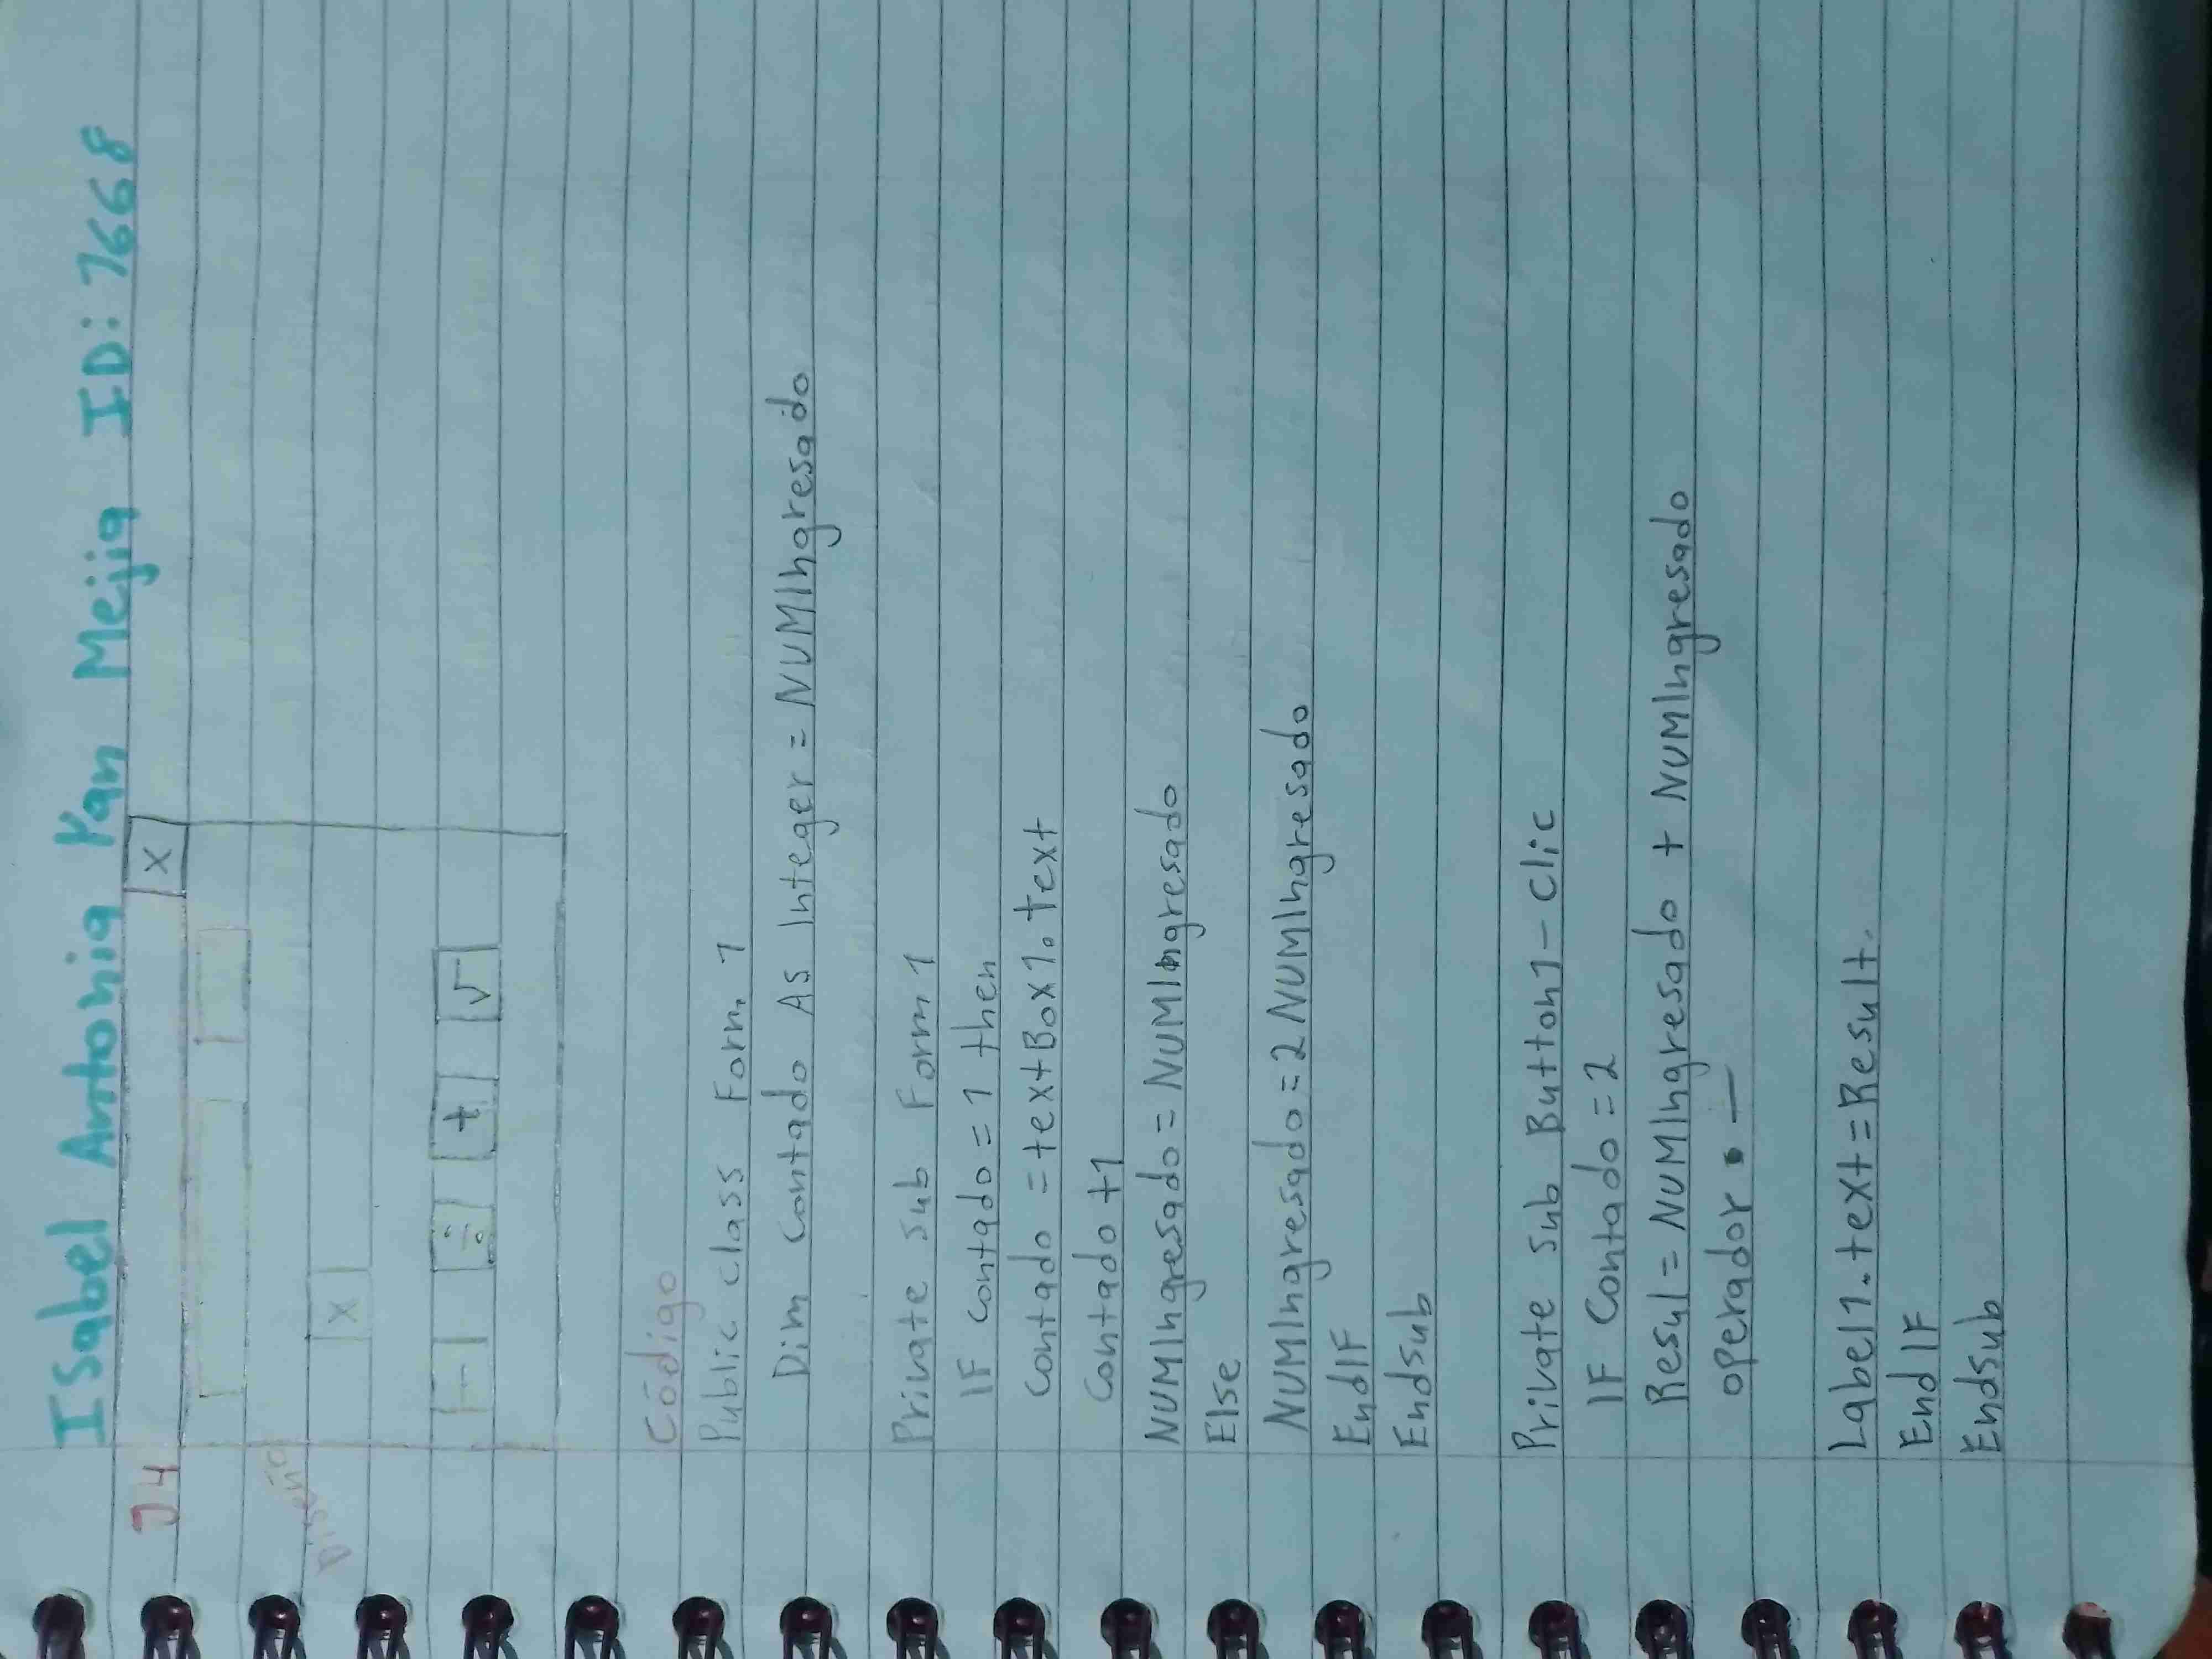 Isabel Antonia Yan Mejia ID: 7668
J4
X
Diseño
X
- ÷ + √
Código
Public class Form 1
Dim Contado As Integer = NUMIngresado
Private sub Form 1
IF contado = 1 then
Contado = textBox1.text
Contado +1
NUMIngresado = NUMIngresado
Else
NUMIngresado = 2 NUMIngresado
EndIF
Endsub
Private sub Button1-clic
IF Contado = 2
Resul = NUMIngresado + NUMIngresado
operador. -
Label1.text = Result.
EndIF
Endsub